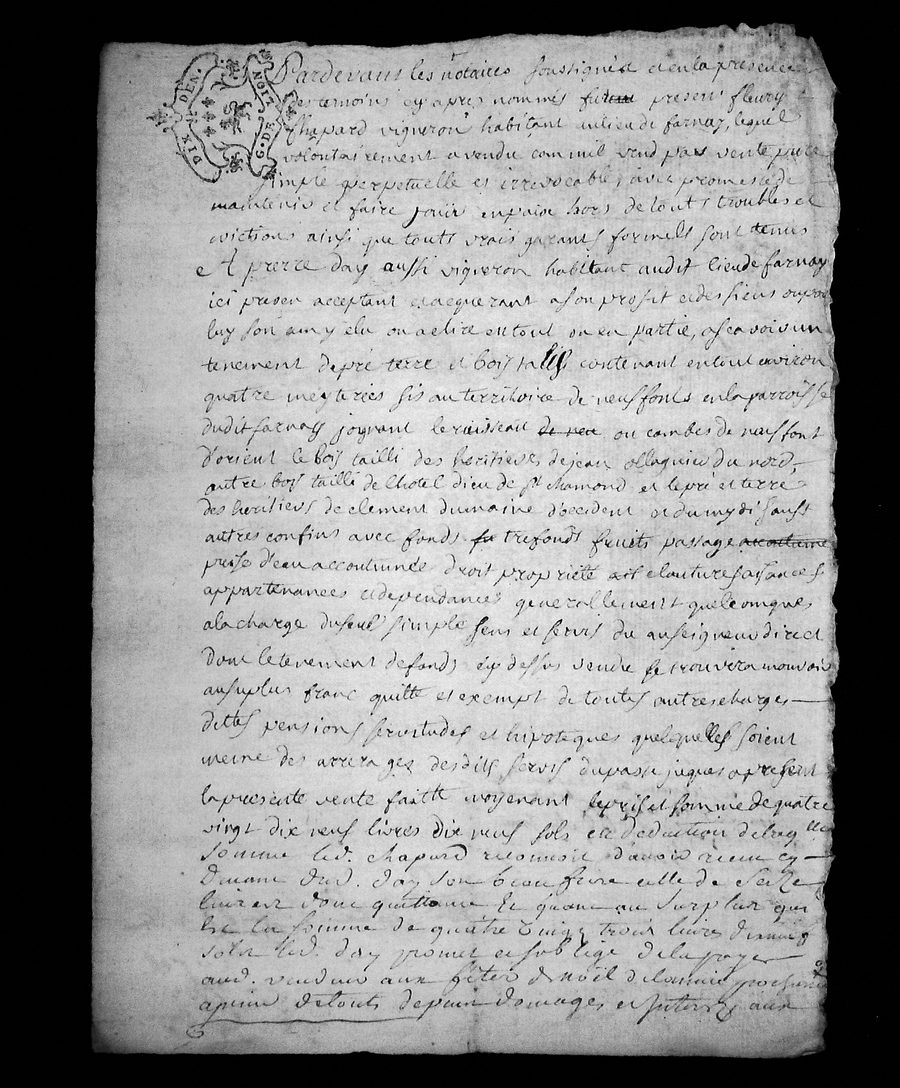 DIX DEN. G. DE NOIT
Pardevant les notaires soussignés et en la presence
des temoins cy apres nommés fut present fleury
Chapard vigneron habitant au lieu de farnay, lequel
volontairement a vendu comme il vend par vente pure
simple perpetuelle et irrevocable, avec promesse de
maintenir et faire jouir en paix hors de touts troubles et
evictions ainsi que touts vrais garants formels sont tenus
A pierre day aussi vigneron habitant audit lieu de farnay
ici present acceptant et acquerant a son profit et des siens ou pour
luy son amy elu ou a elire en tout ou en partie, a scavoir un
tenement de pré terre et bois taillis contenant en tout environ
quatre meyterées sis au territoire de neuf fonts en la parroisse
dudit farnay joignant le ruisseau de neu ou combes de neuf font
d'orient le bois tailli des heritiers de jean ollagnier du nord,
autre bois tailli de l'hotel dieu de St chamond et le pré et terre
des heritiers de clement dumaine d'occident et du mydi sauf
autres confins avec fonds tresfonds fruits passage accoutumé
prise d'eau accoutumée droit proprieté et autres aisances
appartenances et dependances generallement quelconques
a la charge du seul simple sens et servis du au seigneur direct
dont le tenement de fonds cy dessus vendu se trouvera mouvoir
au surplus franc quitte et exempt de toutes autres charges
dettes pensions servitudes et hipoteques quelquelles soient
meme des arrerages desdits servis du passé jusques a present
la presente vente faitte moyenant le prix et somme de quatre
vingt dix neuf livres dix neuf sols en deduction de laqlle
somme led. chapard reconnoit d'avoir receu cy
devant dud. day son beau frere celle de seize
livres dont quittance Et quant au surplus qui
est la somme de quatre vingt trois livres dixneuf
sols led. day promet et s'oblige de la payer
aud. vendeur aux fetes de noël de l'année prochaine
a peine de touts depens domages et interets aux